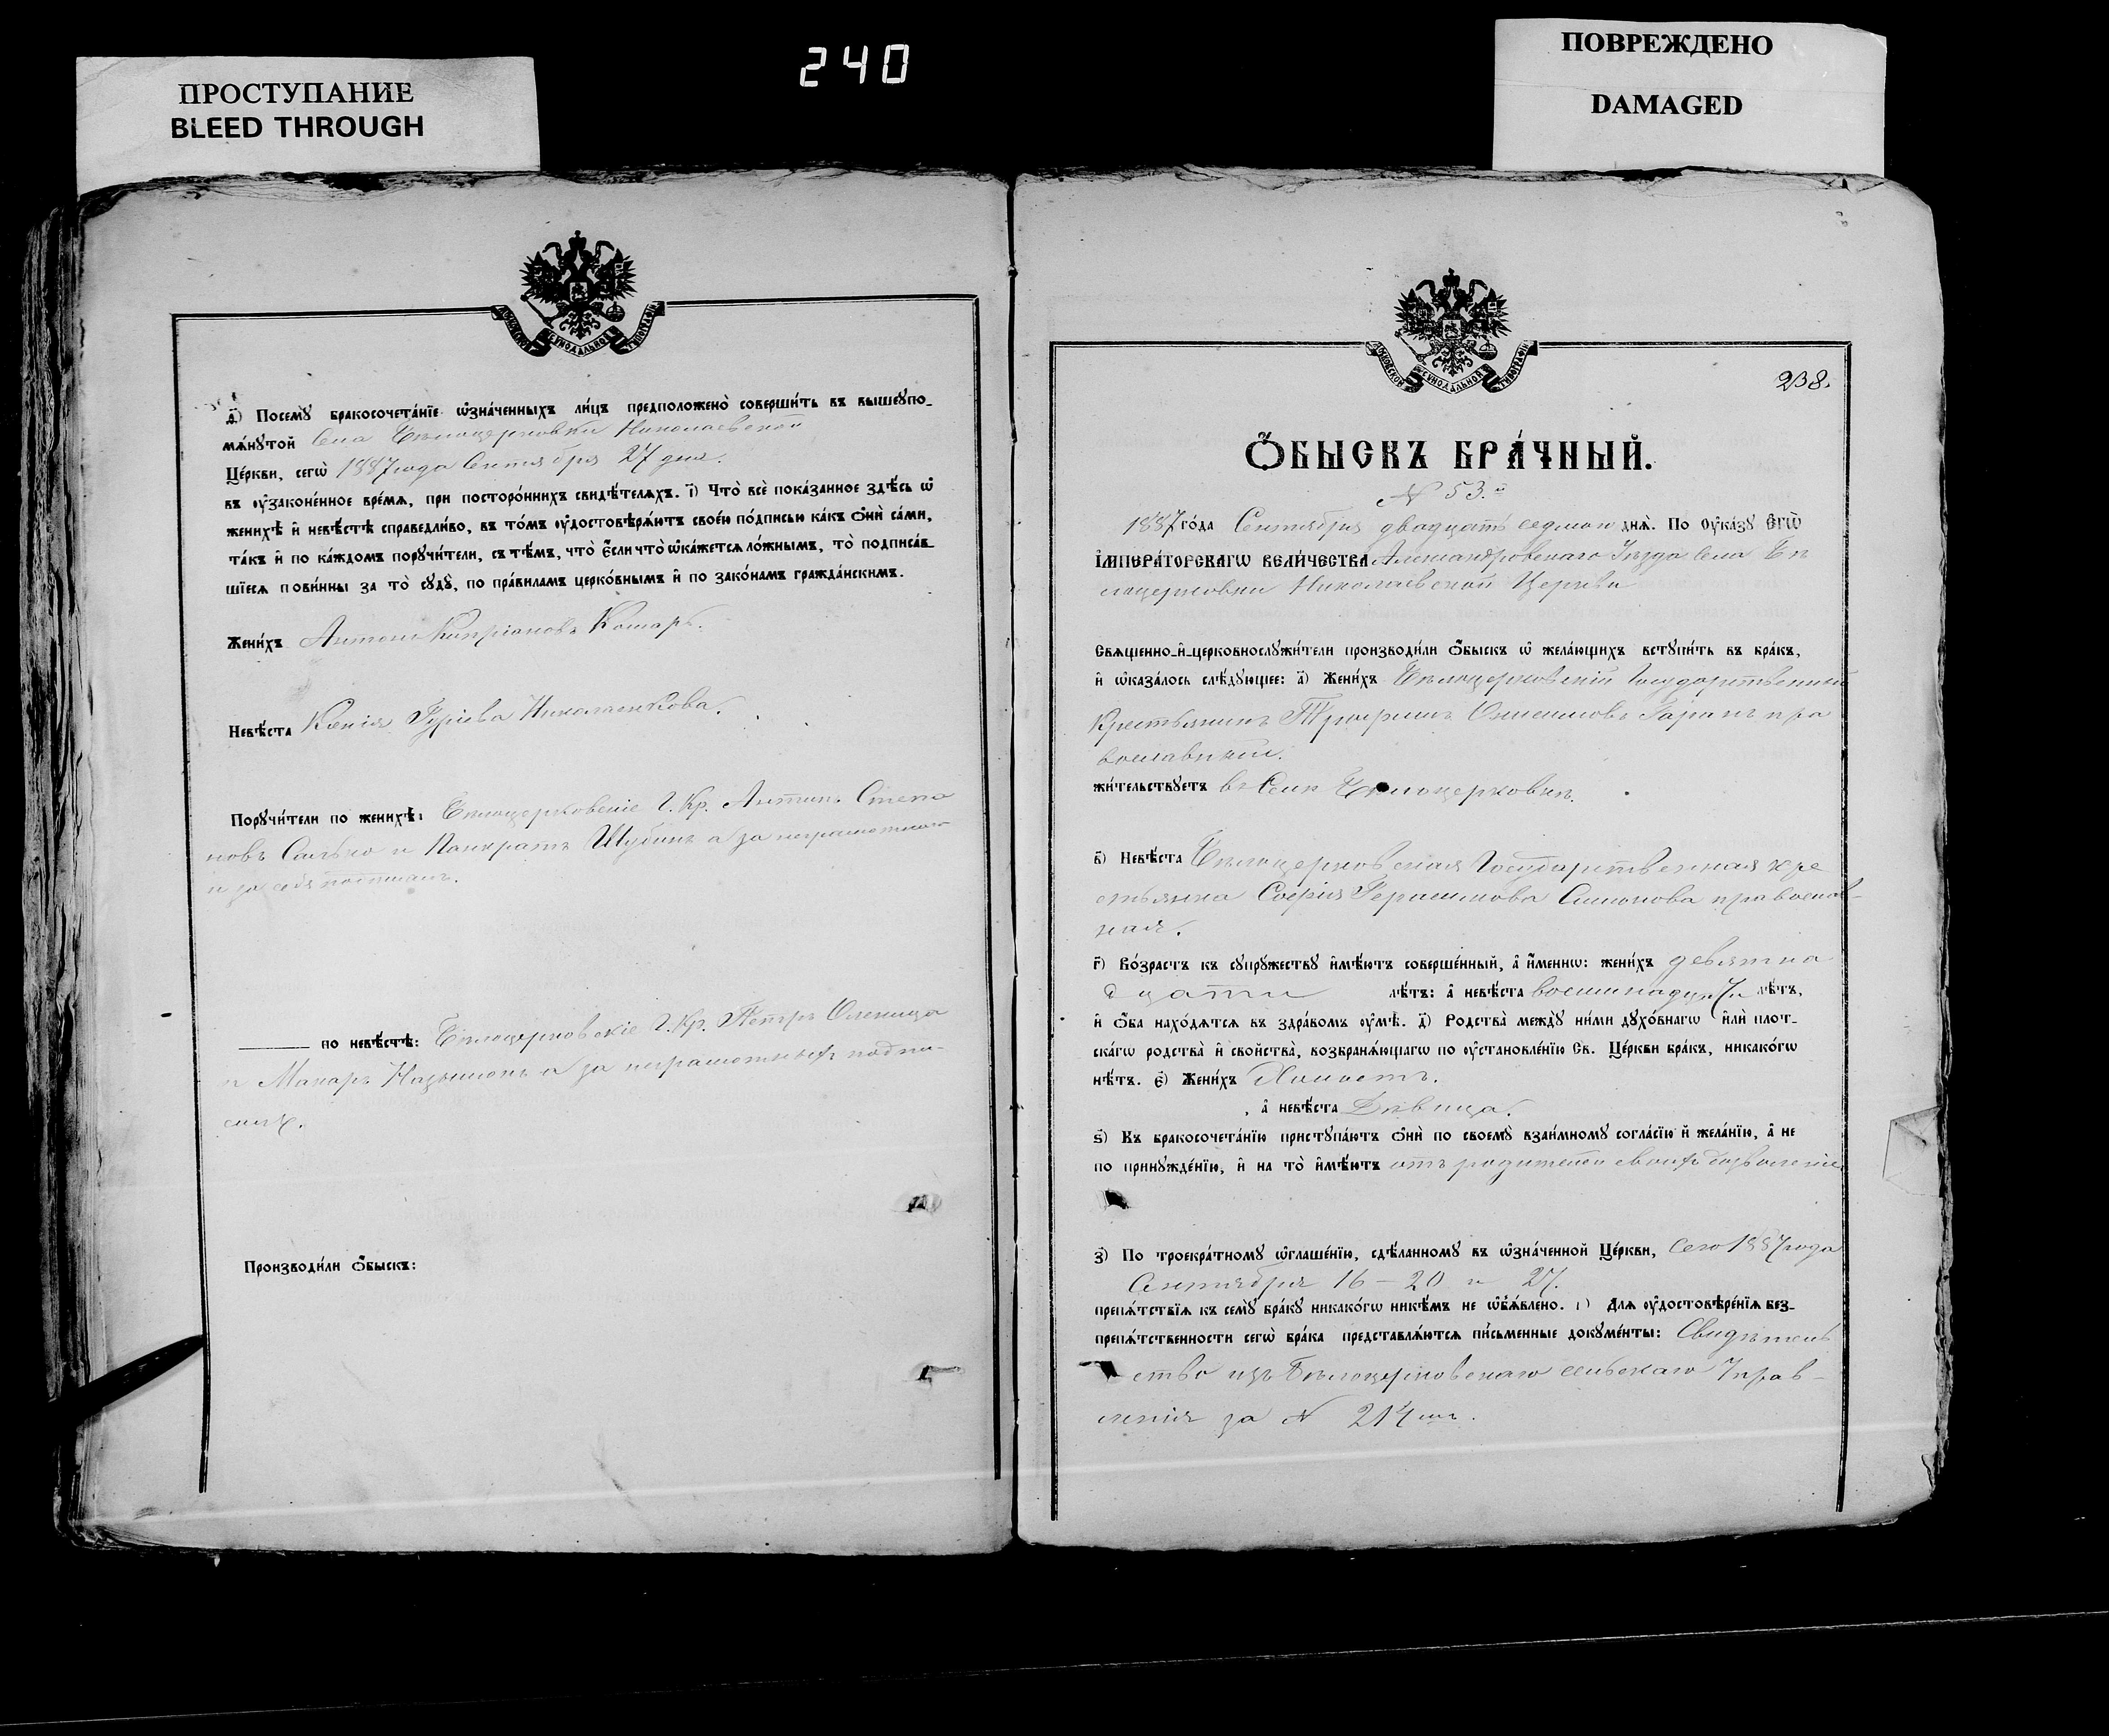 ПРОСТУПАНИЕ
BLEED THROUGH
240
ПОВРЕЖДЕНО
DAMAGED
МОСКОВСКОЙ СУНОДАЛЬНОЙ ТИПОГРАФІИ
д҃) Посемꙋ̀ бракосочета́нїе ѡ҆зна́ченныхъ ли́цъ предположено̀ соверши́ть въ вышеꙋпо-
мѧ́нꙋтой села Бѣлоцерковки Николаевской
Це́ркви, сегѡ̀ 1887 года Сентября 27 дня.
въ ᲂу҆зако́ненное вре́мѧ, при посторо́ннихъ свидѣ́телѧхъ. і҃) Что̀ всѐ пока́занное здѣ́сь ѡ҆
женихѣ̀ и҆ невѣ́стѣ справедли́во, въ то́мъ ᲂу҆достовѣрѧ́ютъ свое́ю по́дписью ка́къ ѻ҆нѝ са́ми,
та́къ и҆ по ка́ждомъ порꙋчи́тели, съ тѣ́мъ, что̀ є҆́сли что̀ ѡ҆ка́жетсѧ ло́жнымъ, то̀ подписа́в-
шїесѧ пови́нны за то̀ сꙋдꙋ̀, по пра́виламъ церко́внымъ и҆ по зако́намъ гражда́нскимъ.
Жени́хъ Антонъ Кипріановъ Кошаръ.
Невѣ́ста Ксенія Гуріева Николаенкова.
Порꙋчи́тели по женихѣ̀: Бѣлоцерковскіе Г. Кр. Антипъ Степа
новъ Салько и Панкратъ Шубинъ а за неграмотнаго
и за себя
по невѣ́стѣ: Бѣлоцерковскіе Г. Кр. Петръ Оленица
и Макаръ а за неграмотныхъ подпи-
Производи́ли ѻ҆́быскъ:
МОСКОВСКОЙ СУНОДАЛЬНОЙ ТИПОГРАФІИ
238.
Ѻ҆́БЫСКЪ БРА́ЧНЫЙ.
N 53.й
1887 го́да Сентября двадцать седмого днѧ̀. По ᲂу҆ка́зꙋ Є҆гѡ̀
И҆мпера́торскагѡ Вели́чества Александровскаго Уѣзда Села Бѣ
лоцерковки Николаевской Церкви
Свѧще́нно-и҆-церковнослꙋжи́тели производи́ли ѻ҆́быскъ ѡ҆ жела́ющихъ встꙋпи́ть въ бра́къ,
и҆ ѡ҆каза́лось слѣ́дꙋющее: а҃) Жени́хъ Бѣлоцерковскій Государственный
Крестьянинъ Трофимъ Онисимовъ Таранъ пра
вославный.
жи́тельствꙋетъ въ Селѣ Бѣлоцерковкѣ.
в҃) Невѣ́ста Бѣлоцерковская Государственная кре
стьянка Софія Герасимова Симонова православ-
ная.
г҃) Во́зрастъ къ сꙋпрꙋ́жествꙋ и҆мѣ́ютъ соверше́нный, а҆ и҆́менно: жени́хъ девятна
дцати лѣ́тъ: а҆ невѣ́ста восемнадцати лѣ́тъ,
и҆ ѻ҆́ба нахо́дѧтсѧ въ здра́вомъ ᲂу҆мѣ̀. д҃) Родства̀ междꙋ̀ ни́ми дꙋхо́внагѡ и҆лѝ плот-
ска́гѡ родства̀ и҆ сво́йства, возбранѧ́ющагѡ по ᲂу҆становле́нїю Св. Це́ркви бра́къ, никако́гѡ
нѣ́тъ. є҃) Жени́хъ Холостъ.
, а҆ невѣ́ста Дѣвица.
ѕ҃) Къ бракосочета́нїю пристꙋпа́ютъ ѻ҆нѝ по своемꙋ̀ взаи́мномꙋ согла́сїю и҆ жела́нїю, а҆ не
по принꙋжде́нїю, и҆ на то̀ и҆мѣ́ютъ отъ родителей своихъ дозволеніе
з҃) По троекра́тномꙋ ѡ҆глаше́нїю, сдѣ́ланномꙋ въ ѡ҆зна́ченной Це́ркви, сего 1887 года
Сентября 16 – 20 и 27.
препѧ́тствїѧ къ семꙋ̀ бра́кꙋ никако́гѡ никѣ́мъ не ѡ҆б̾ѧ́влено. и҃) Длѧ ᲂу҆достовѣре́нїѧ без-
препѧ́тственности сегѡ̀ бра́ка представлѧ́ютсѧ пи́сьменные докꙋме́нты: Свидѣтель
ство изъ Бѣлоцерковскаго сельскаго Управ-
ленія за N 214